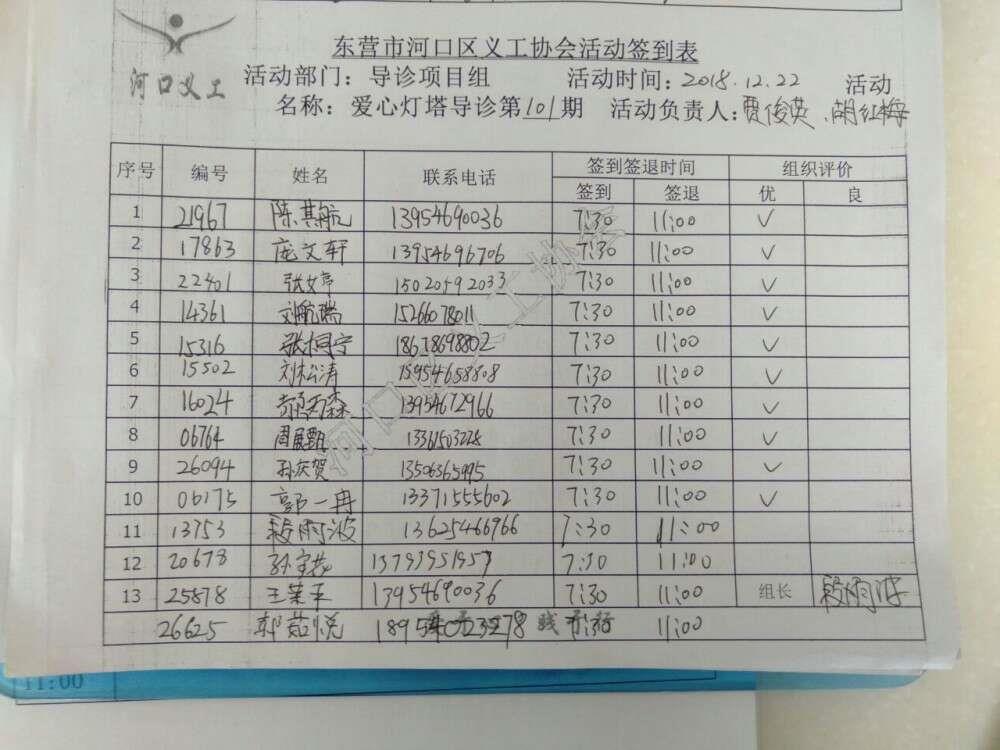 东营市河口区义工协会活动签到表
河口义工
活动部门：导诊项目组 活动时间：2018.12.22 活动
名称：爱心灯塔导诊第101期 活动负责人：贾俊英、胡红梅
序号 编号 姓名 联系电话 签到签退时间 组织评价
签到 签退 优 良
1 21967 陈其航 13954690036 7:30 11:00 ✓
2 17863 庞文轩 13954696706 7:30 11:00 ✓
3 22401 张文亭 15020592033 7:30 11:00 ✓
4 14361 刘航瑞 15266078011 7:30 11:00 ✓
5 15316 张桐宁 18678698802 7:30 11:00 ✓
6 15502 刘松涛 15954658808 7:30 11:00 ✓
7 16024 森 13954672966 7:30 11:00 ✓
8 06764 周展甄 13361503228 7:30 11:00 ✓
9 26094 孙庆贺 13506365995 7:30 11:00 ✓
10 06175 郭一冉 13371555602 7:30 11:00 ✓
11 13753 段雨波 13625466966 7:30 11:00
12 20678 孙 13793951957 7:30 11:00
13 25878 王 13954690036 7:30 11:00 组长 段雨波
26625 郭茹悦 11:00
河口区义工协会
11:00